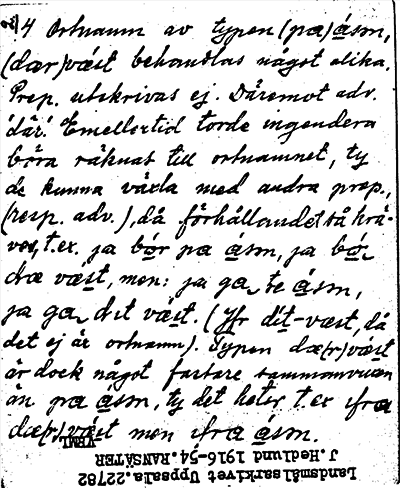 4 Ortnamn av typen (pa) åsm,
(dær) væst behandlas något olika.
Prep. utskrivas ej. Däremot adv.
'där'. Emellertid torde ingendera
böra räknas till ortnamnet, ty
de kunna växla med andra prep.,
(resp. adv.), då förhållandet så krä-
ves, t.ex. ja bor pa åsm, ja bor
dræ væst, men: ja ga te åsm,
ja ga dit væst. (Jfr dit-væst, då
det ej är ortnamn). Typen dæ(r) væst
är dock något fastare sammanvuxen
än pa åsm, ty det heter t.ex ifra
dæ(r) væst men ifra åsm.
VRML
J. Hedlund 1916-54. RANSÄTER
Landsmålsarkivet Uppsala. 22782